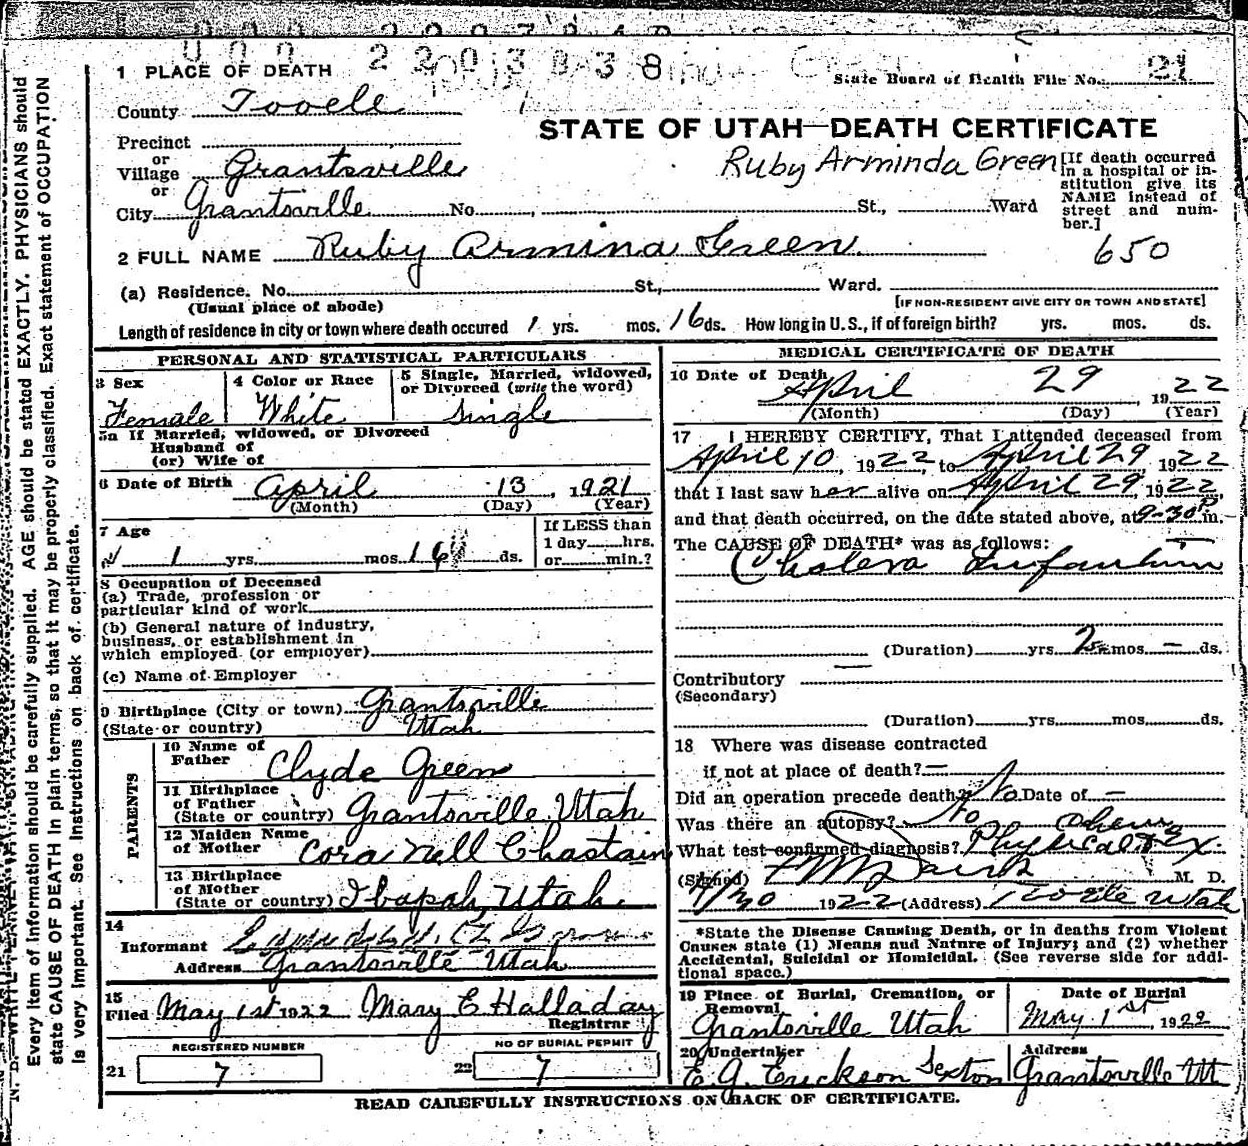 000 2203838
1 PLACE OF DEATH
State Board of Health File No. 21
County Tooele
STATE OF UTAH—DEATH CERTIFICATE
Precinct
or
Village Grantsville
or
City Grantsville No. St., Ward
Ruby Arminda Green
[If death occurred in a hospital or institution give its NAME instead of street and number.]
650
2 FULL NAME Ruby Armina Green
(a) Residence. No. St., Ward.
(Usual place of abode)
[IF NON-RESIDENT GIVE CITY OR TOWN AND STATE]
Length of residence in city or town where death occured 1 yrs. mos. 16 ds. How long in U.S., if of foreign birth? yrs. mos. ds.
PERSONAL AND STATISTICAL PARTICULARS
3 Sex
Female
4 Color or Race
White
5 Single, Married, widowed, or Divorced (write the word)
Single
5a If Married, widowed, or Divorced
Husband of
(or) Wife of
6 Date of Birth April 13, 1921
(Month) (Day) (Year)
7 Age
1 yrs. mos. 16 ds.
If LESS than
1 day hrs.
or min.?
8 Occupation of Deceased
(a) Trade, profession or
particular kind of work
(b) General nature of industry,
business, or establishment in
which employed (or employer)
(c) Name of Employer
9 Birthplace (City or town) Grantsville
(State or country) Utah
PARENTS
10 Name of Father Clyde Green
11 Birthplace of Father
(State or country) Grantsville Utah
12 Maiden Name of Mother Cora Nell Chastain
13 Birthplace of Mother
(State or country) Ibapah, Utah.
14
Informant
Address Grantsville Utah
15
Filed May 1st 1922 Mary E Halladay
Registrar
REGISTERED NUMBER
21 7
NO OF BURIAL PERMIT
22 7
MEDICAL CERTIFICATE OF DEATH
16 Date of Death April 29, 1922
(Month) (Day) (Year)
17 I HEREBY CERTIFY, That I attended deceased from
April 10, 1922, to April 29 1922
that I last saw her alive on April 29, 1922,
and that death occurred, on the date stated above, at 9-30 P m.
The CAUSE OF DEATH* was as follows:
Cholera Infantum
(Duration) yrs. 2 mos. — ds.
Contributory
(Secondary)
(Duration) yrs. mos. ds.
18 Where was disease contracted
if not at place of death? —
Did an operation precede death? No Date of —
Was there an autopsy? No
What test confirmed diagnosis? Physical Ex.
(Signed) M. D.
4/30 1922 (Address) Tooele Utah
*State the Disease Causing Death, or in deaths from Violent
Causes state (1) Means and Nature of Injury; and (2) whether
Accidental, Suicidal or Homicidal. (See reverse side for additional space.)
19 Place of Burial, Cremation, or Removal
Grantsville Utah
Date of Burial
May 1st, 1922
20 Undertaker
E G. Erickson Sexton
Address
Grantsville Ut
READ CAREFULLY INSTRUCTIONS ON BACK OF CERTIFICATE.
Every item of information should be carefully supplied. AGE should be stated EXACTLY. PHYSICIANS should
state CAUSE OF DEATH in plain terms, so that it may be properly classified. Exact statement of OCCUPATION
is very important. See instructions on back of certificate.